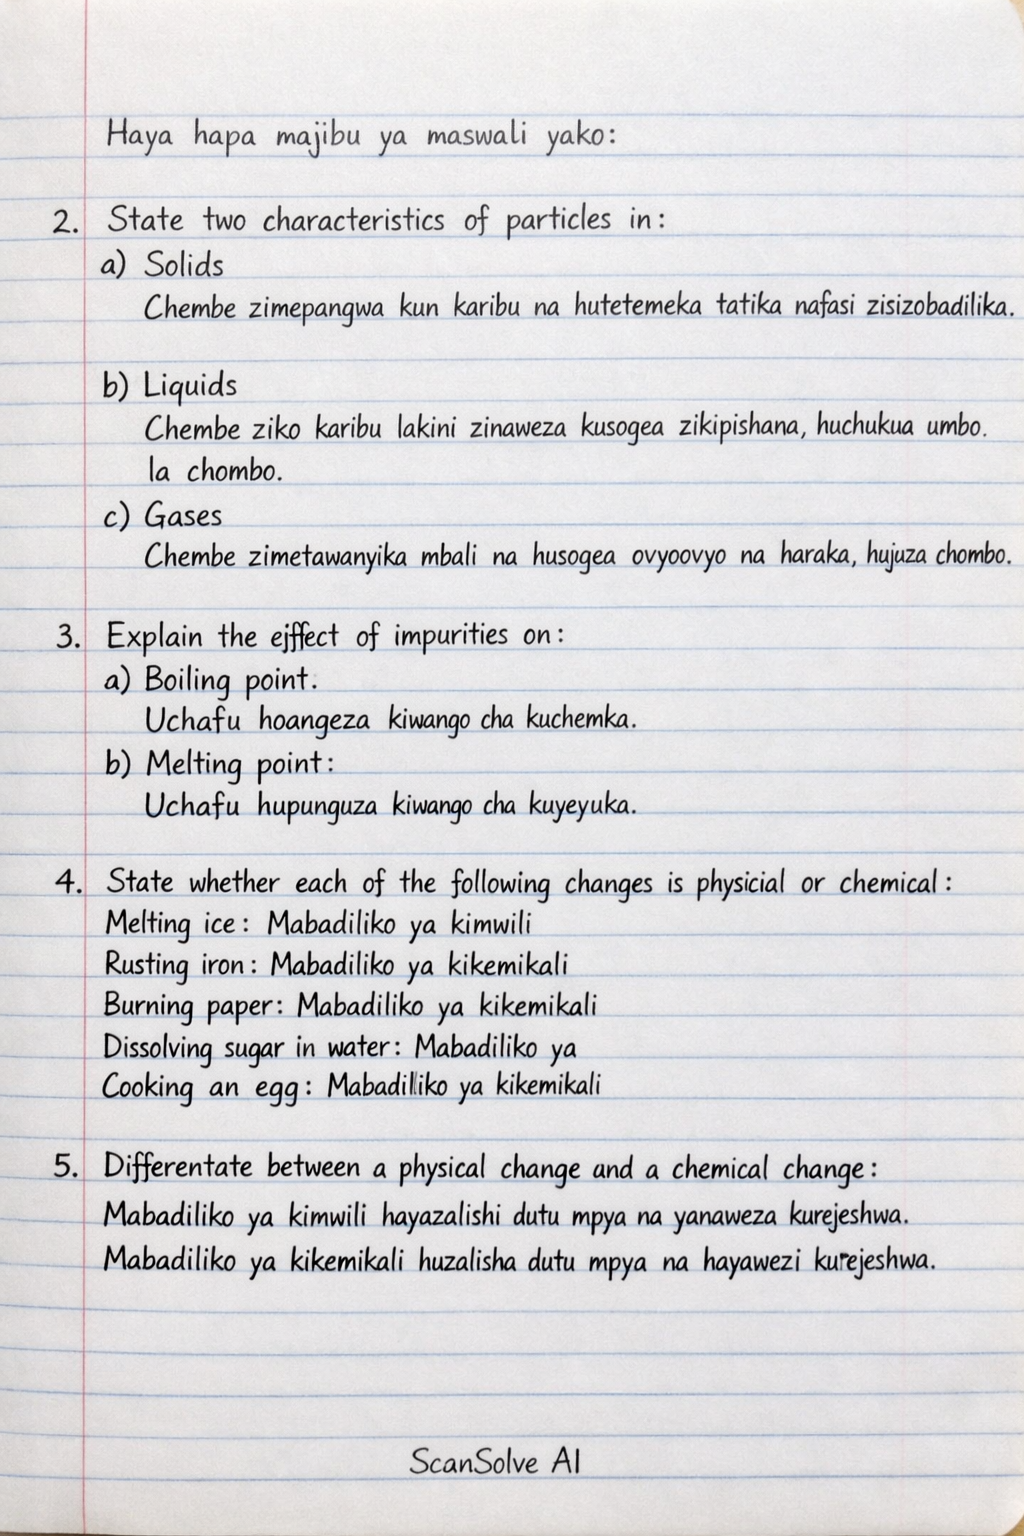 Haya hapa majibu ya maswali yako:
2. State two characteristics of particles in:
a) Solids
Chembe zimepangwa kun karibu na hutetemeka tatika nafasi zisizobadilika.
b) Liquids
Chembe ziko karibu lakini zinaweza kusogea zikipishana, huchukua umbo.
la chombo.
c) Gases
Chembe zimetawanyika mbali na husogea ovyoovyo na haraka, hujuza chombo.
3. Explain the ejffect of impurities on:
a) Boiling point.
Uchafu hoangeza kiwango cha kuchemka.
b) Melting point:
Uchafu hupunguza kiwango cha kuyeyuka.
4. State whether each of the following changes is physicial or chemical:
Melting ice: Mabadiliko ya kimwili
Rusting iron: Mabadiliko ya kikemikali
Burning paper: Mabadiliko ya kikemikali
Dissolving sugar in water: Mabadiliko ya
Cooking an egg: Mabadiliko ya kikemikali
5. Differentate between a physical change and a chemical change:
Mabadiliko ya kimwili hayazalishi dutu mpya na yanaweza kurejeshwa.
Mabadiliko ya kikemikali huzalisha dutu mpya na hayawezi kurejeshwa.
ScanSolve AI